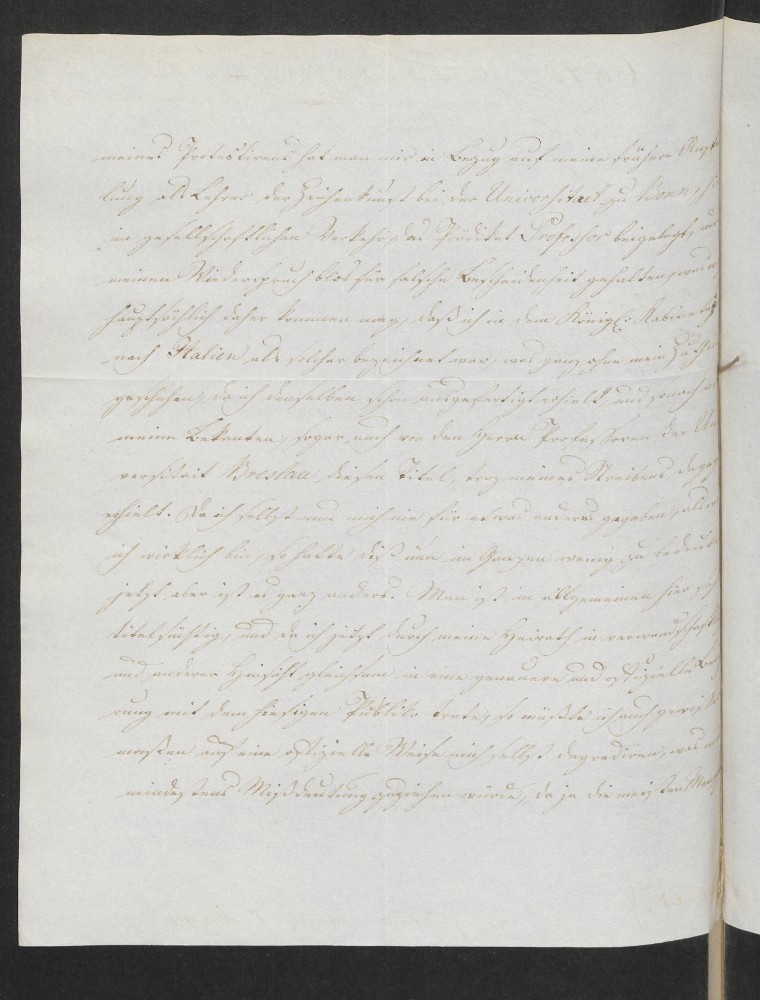 meines Protestirens hat man mir in Bezug auf meine frühere
lung als Lehrer der Zeichenkunst bei der Universitaet zu Bonn,
im gesellschaftlichen Verkehr das Prädikat Professor beigelegt,
meinen Wiederspruch blos für falsche Bescheidenheit gehalten, was
hauptsächlich daher kommen mag, daß ich in dem Königl: Kabinets
nach Italien als solcher bezeichnet war, was ganz ohne mein
geschehen, da ich denselben schon ausgefertigt erhielt, und sonach
meine Bekanten, sogar auch von den Herrn Professoren der Uni
versitaet Breslau diesen Titel, troz meines Streibens
erhielt. Da ich selbst nun mich nie für etwas anders gegeben, als
ich wirklich bin, so hatte dis nun im Ganzen wenig zu bedeut
jetzt aber ist es ganz anders. Man ist im allgemeinen hier
titelsüchtig, und da ich jetzt durch meine Heirath in verwandschaftl
und anderer Hinsicht gleichsam in eine genauere und offizielle Be
rung mit dem hiesigen Publiko trete, so müßte ich auch gewißer
maßen auf eine offizielle Weise mich selbst degradiren, was
mindestens Mißdeutung zuziehen würde, da ja die meisten Mensch